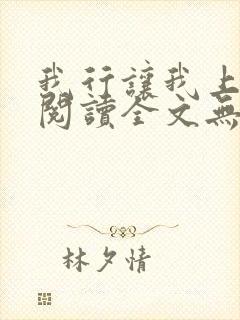 我行讓我上
閱讀全文無
林夕情